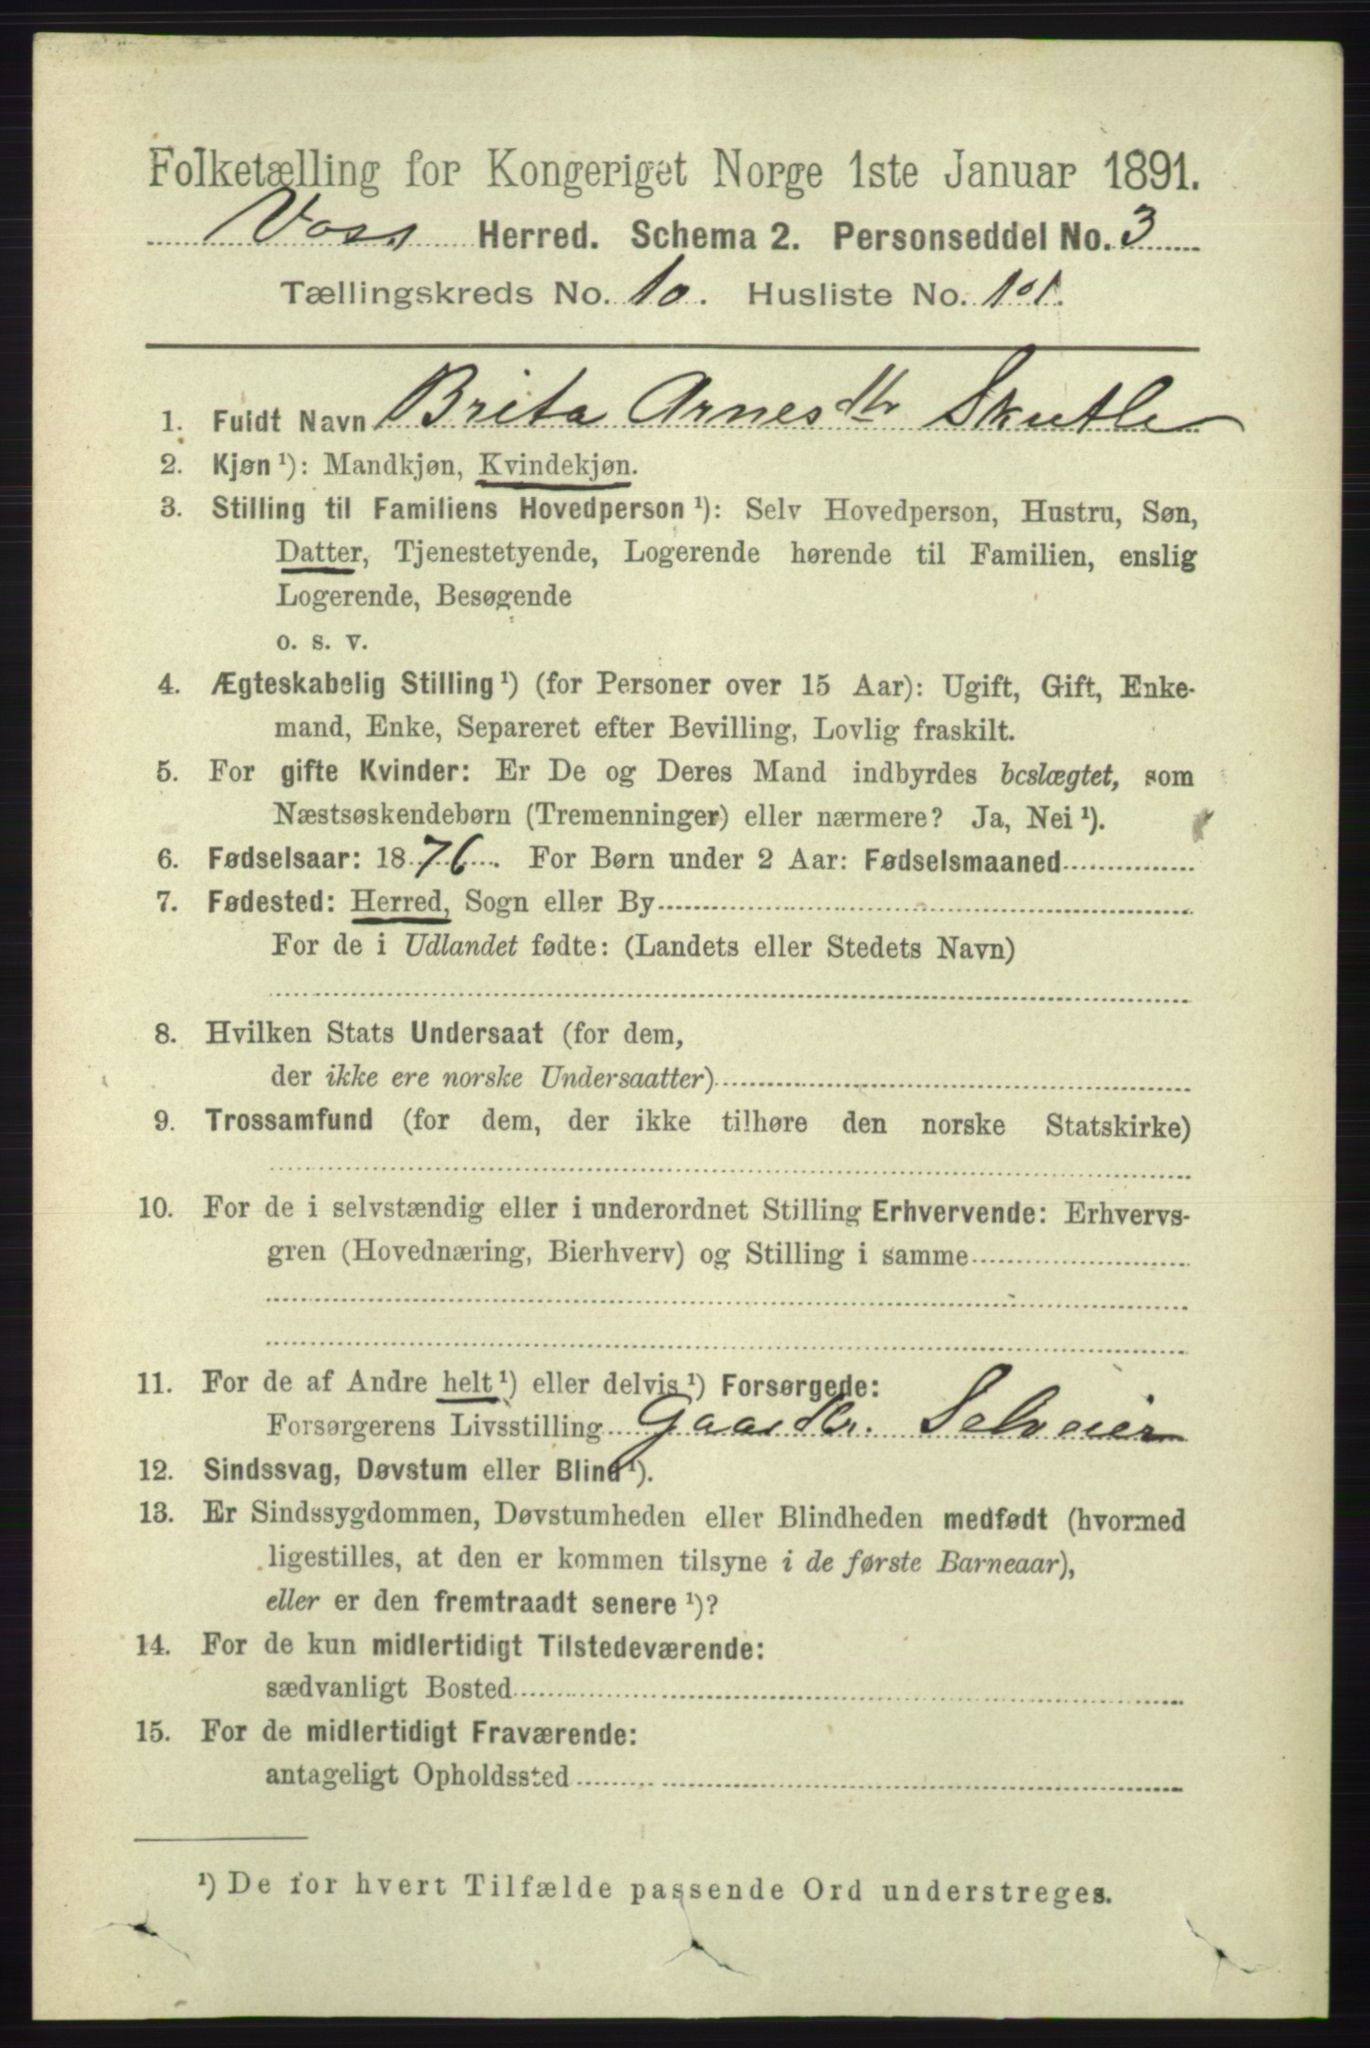 Folketælling for Kongeriget Norge 1ste Januar 1891.
Voss Herred. Schema 2. Personseddel No. 3
Tællingskreds No. 10. Husliste No. 101.
1. Fuldt Navn Brita Arnesdtr Skutle
2. Kjøn ¹): Mandkjøn, Kvindekjøn.
3. Stilling til Familiens Hovedperson ¹): Selv Hovedperson, Hustru, Søn,
Datter, Tjenestetyende, Logerende hørende til Familien, enslig
Logerende, Besøgende
o. s. v.
4. Ægteskabelig Stilling ¹) (for Personer over 15 Aar): Ugift, Gift, Enke-
mand, Enke, Separeret efter Bevilling, Lovlig fraskilt.
5. For gifte Kvinder: Er De og Deres Mand indbyrdes beslægtet, som
Næstsøskendebørn (Tremenninger) eller nærmere? Ja, Nei ¹).
6. Fødselsaar: 1876. For Børn under 2 Aar: Fødselsmaaned
7. Fødested: Herred, Sogn eller By
For de i Udlandet fødte: (Landets eller Stedets Navn)
8. Hvilken Stats Undersaat (for dem,
der ikke ere norske Undersaatter)
9. Trossamfund (for dem, der ikke tilhøre den norske Statskirke)
10. For de i selvstændig eller i underordnet Stilling Erhvervende: Erhvervs-
gren (Hovednæring, Bierhverv) og Stilling i samme
11. For de af Andre helt ¹) eller delvis ¹) Forsørgede:
Forsørgerens Livsstilling Gaardbr. Selveier
12. Sindssvag, Døvstum eller Blind ¹).
13. Er Sindssygdommen, Døvstumheden eller Blindheden medfødt (hvormed
ligestilles, at den er kommen tilsyne i de første Barneaar),
eller er den fremtraadt senere ¹)?
14. For de kun midlertidigt Tilstedeværende:
sædvanligt Bosted
15. For de midlertidigt Fraværende:
antageligt Opholdssted
¹) De for hvert Tilfælde passende Ord understreges.